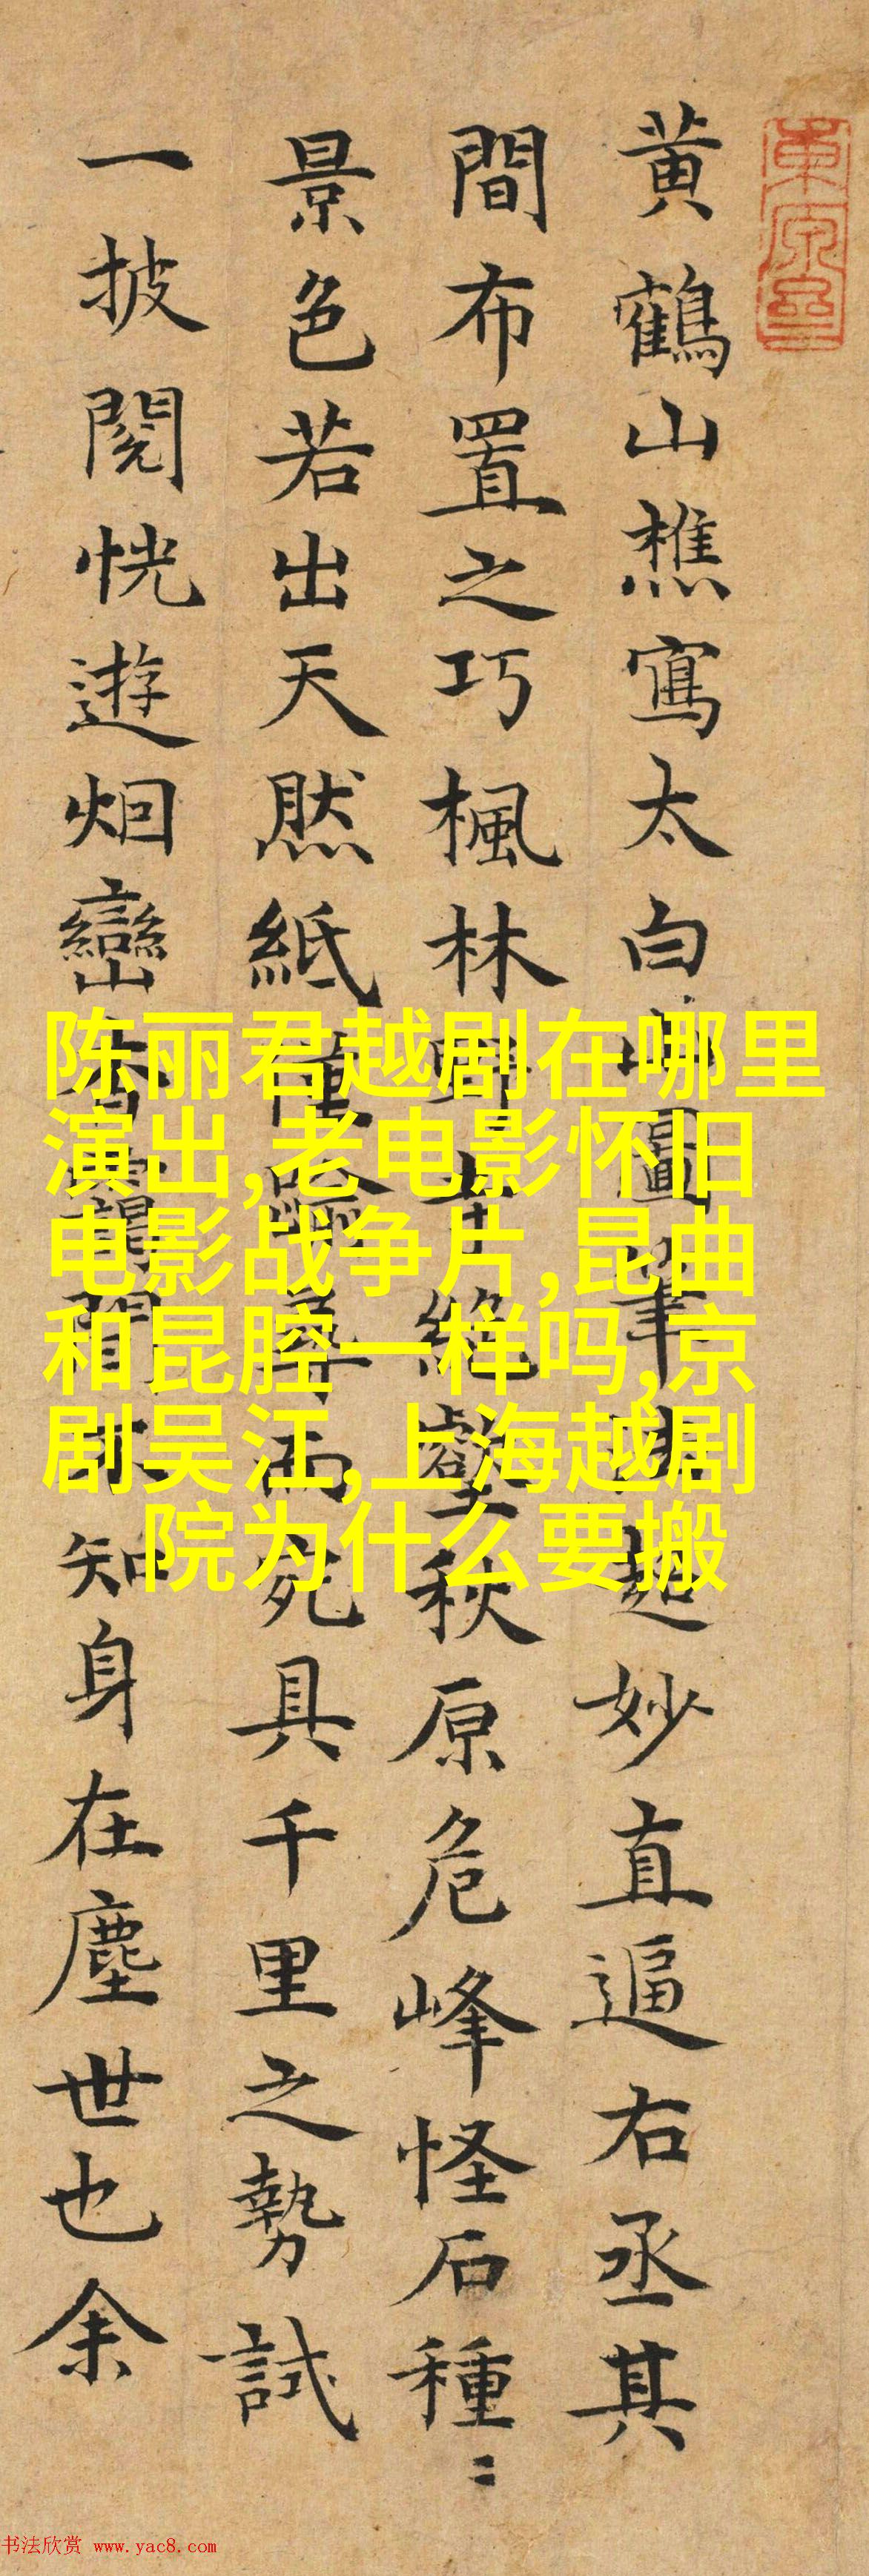 黄鶴山樵寫太白山圖筆超妙直逼右丞其
間布置之巧楓林野寺絕壑秋原危峰怪石種〻
景色若出天然紙僅尋而宛具千里之勢試
一披閱恍遊烟巒杳靄間不知身在塵世也余
陈丽君越剧在哪里
演出,老电影怀旧
电影战争片,昆曲
和昆腔一样吗,京
剧吴江,上海越剧
院为什么要搬
书法欣赏 www.yac8.com